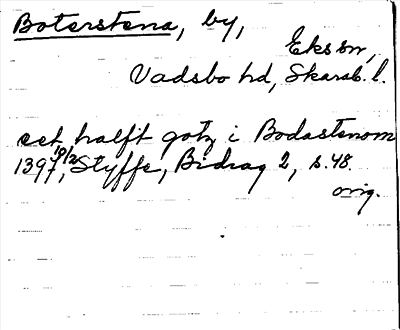 Boterstena, by,
Eks sn,
Vadsbo hd, Skarab. l.
eet halfft gotz i Bodastenom
1397 10/2, Styffe, Bidrag 2, s. 48.
orig.